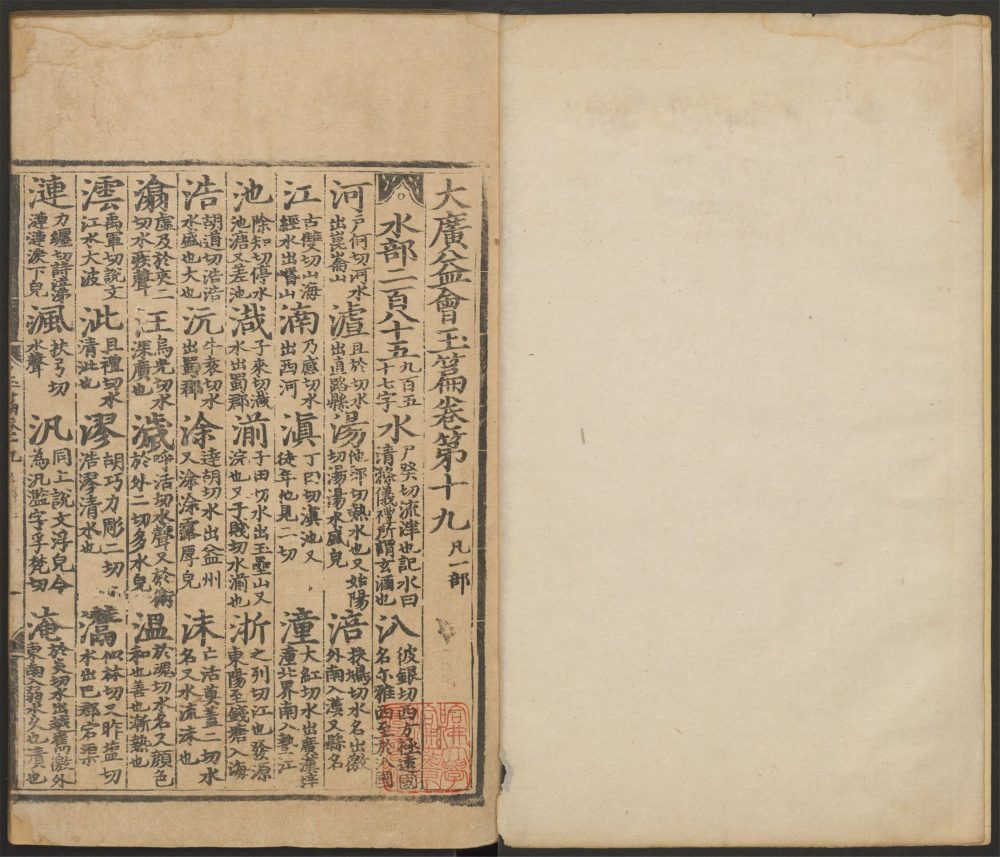 大廣益會玉篇卷第十九 凡一部
水部二百八十五 九百五十七字 水 尸癸切流津也記水曰清滌儀禮所謂玄酒也 汃 彼銀切西方極遠國名尓雅西至於汃國
河 戶何切河水出崑崙山 瀘 且於切水出直路縣 湯 他郎切熱水也又始陽切湯湯水盛皃 涪 扶鳩切水名出徼外南入漢又縣名
江 古雙切山海經水出岷山 湳 乃感切水出西河 滇 丁田切滇池又徒年他見二切 潼 大紅切水出廣漢梓潼北界南入墊江
池 除知切停水池溏又差池 渽 子來切渽水出蜀郡 湔 子田切水出玉壘山又浣也又子賤切水湔也 浙 之列切江也發源東陽至錢塘入海
浩 胡道切浩浩水盛也大也 沅 牛袁切水出蜀郡 涂 達胡切水出益州又涂涂露厚皃 沬 亡活莫蓋二切水名又水流沬也
潝 虛及於夾二切水疾聲 汪 烏光切水深廣也 濊 呼活切水聲又於衛於外二切多水皃 温 於魂切水名又顏色和也善也漸熱也
澐 禹軍切說文江水大波 泚 且禮切水清泚也 漻 胡巧力彫二切浩漻清水也 灊 似林切又昨塩切水出巴郡宕渠
漣 力纏切詩涕漣漣淚下皃 渢 扶弓切水聲 汎 同上說文浮皃今為汎濫字孚梵切 淹 於炎切水出越嶲徼外東南入弱水久也漬也